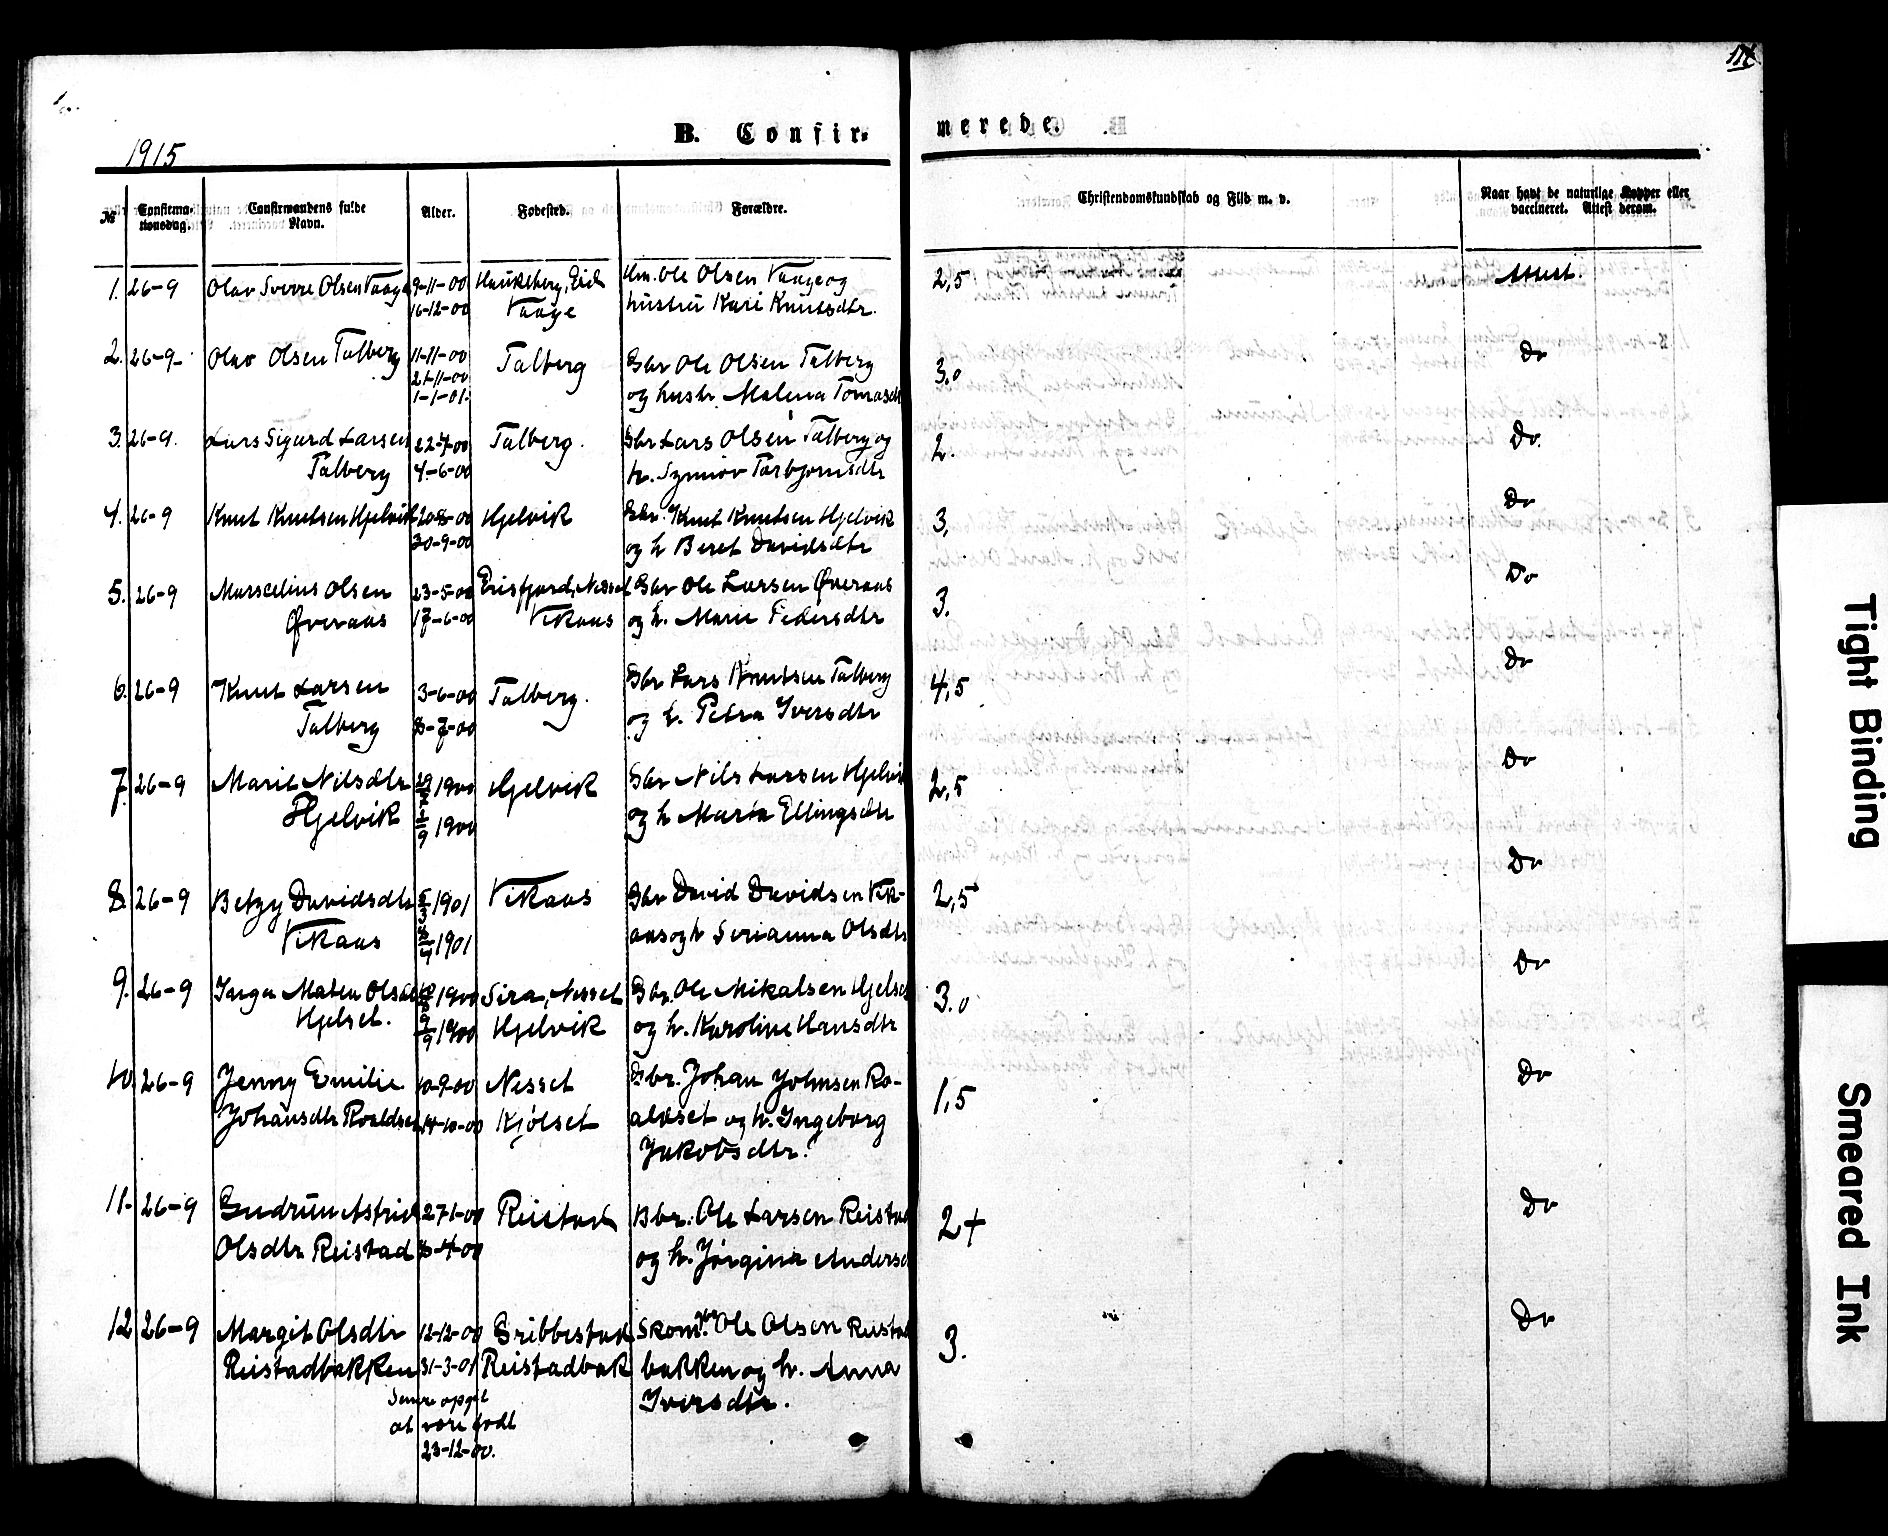 1915
B. Confirmerede.
№
Confirmationsdag.
Confirmandens fulde Navn.
Alder.
Fødested.
Forældre.
Christendomskundskab og Flid m. v.
Naar havt de naturlige Kopper eller vaccineret. Attest derom.
1. 26-9 Olav Sverre Olsen Vaage 9-11-00 Haukeberg, Eid Ole Olsen Vaage og 2,5 Attest.
16-12-00 Vaage hustru Kari Knutsdtr.
2. 26-9- Olav Olsen Talberg 11-11-00 Talberg Gbr Ole Olsen Talberg 3.0 Do
21-11-00
1-1-01. og hustr. Malena Tomasdt
3. 26-9. Lars Sigurd Larsen 22-7-00 Talberg. Gbr Lars Olsen Talberg og 2. Do.
Talberg 4-6-00 h. Synnøv Torbjørnsdtr
4. 26-9 Knut Knutsen Hjelvik 20-8-00 Hjelvik Gbr. Knut Knutsen Hjelvik 3, Do
30-9-00 og h Beret Davidsdtr
5. 26-9 Marselius Olsen 23-5-00 Erisfjord, Nesset Gbr Ole Larsen Øveraas 3. Do
Øveraas 17-6-00 Vikaas og h. Marie Pedersdtr
6. 26-9 Knut Larsen 3-6-00 Talberg. Gbr Lars Knutsen Talberg 4,5 Do
Talberg 8-7-00 og h. Petra Iversdtr
7. 26-9 Marit Nilsdtr 1900 Hjelvik Gbr Nils Larsen Hjelvik 2,5 Do
Hjelvik 1900 og h Marta Ellingsdtr
8. 26-9 Betzy Davidsdtr 5/3 1901 Vikaas Gbr David Davidsen Vik- 2,5 Do
Vikaas 1901 aas og h Serianna Olsdtr
9. 26-9 Inga Matea Olsdtr 1900 Sira, Nesset Gbr. Ole Mikalsen Hjelset 3.0 Do
Hjelset. 9/9 1900 Hjelvik og h. Karoline Hansdtr
10. 26-9 Jenny Emilie 10-9-00 Nesset Gbr. Johan Johnsen Ro- 1,5 Do
Johansdtr Roaldset 14-10-00 Kjølset aldset og h. Ingeborg
Jakobsdtr.
11. 26-9 Gudrun Astrid 27-1-00 Reistad Gbr. Ole Larsen Reistad 2+ Do
Olsdtr Reistad 8-4-00 og h. Jørgina Andersd
12 26-9 Margit Olsdtr 12-12-00 Gribbestad Skom. Ole Olsen Reistad 3. Do
Reistadbakken 31-3-01 Reistadbak bakken og h. Anna
Senere opgit Iversdtr.
at være født
23-12-00.
Tight Binding
Smeared Ink